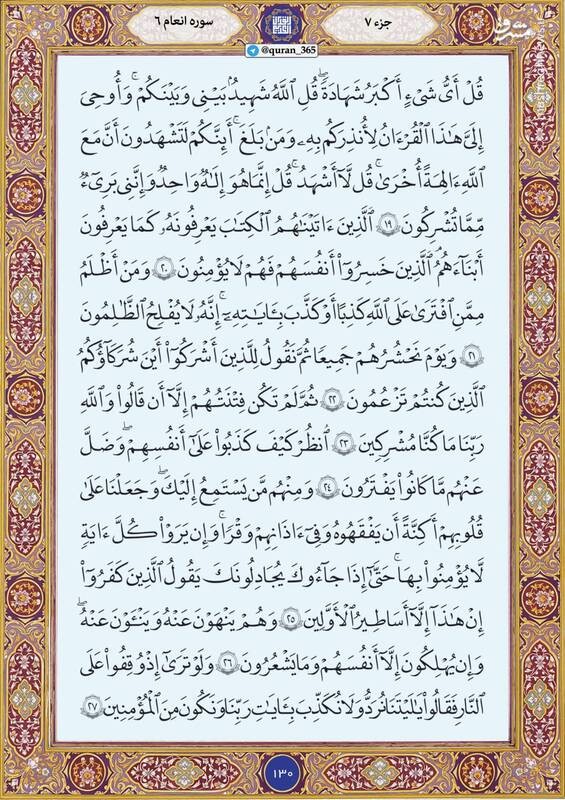 جزء ۷
سوره انعام ۶
@quran_365
قُلْ أَىُّ شَىْءٍ أَكْبَرُ شَهَٰدَةً ۖ قُلِ ٱللَّهُ شَهِيدٌۢ بَيْنِى وَبَيْنَكُمْ ۚ وَأُوحِىَ
إِلَىَّ هَٰذَا ٱلْقُرْءَانُ لِأُنذِرَكُم بِهِۦ وَمَنۢ بَلَغَ ۚ أَئِنَّكُمْ لَتَشْهَدُونَ أَنَّ مَعَ
ٱللَّهِ ءَالِهَةً أُخْرَىٰ ۚ قُل لَّآ أَشْهَدُ ۚ قُلْ إِنَّمَا هُوَ إِلَٰهٌ وَٰحِدٌ وَإِنَّنِى بَرِىٓءٌ
مِّمَّا تُشْرِكُونَ ١٩ ٱلَّذِينَ ءَاتَيْنَٰهُمُ ٱلْكِتَٰبَ يَعْرِفُونَهُۥ كَمَا يَعْرِفُونَ
أَبْنَآءَهُمُ ۘ ٱلَّذِينَ خَسِرُوٓا۟ أَنفُسَهُمْ فَهُمْ لَا يُؤْمِنُونَ ٢٠ وَمَنْ أَظْلَمُ
مِمَّنِ ٱفْتَرَىٰ عَلَى ٱللَّهِ كَذِبًا أَوْ كَذَّبَ بِـَٔايَٰتِهِۦٓ ۗ إِنَّهُۥ لَا يُفْلِحُ ٱلظَّٰلِمُونَ
٢١ وَيَوْمَ نَحْشُرُهُمْ جَمِيعًا ثُمَّ نَقُولُ لِلَّذِينَ أَشْرَكُوٓا۟ أَيْنَ شُرَكَآؤُكُمُ
ٱلَّذِينَ كُنتُمْ تَزْعُمُونَ ٢٢ ثُمَّ لَمْ تَكُن فِتْنَتُهُمْ إِلَّآ أَن قَالُوا۟ وَٱللَّهِ
رَبِّنَا مَا كُنَّا مُشْرِكِينَ ٢٣ ٱنظُرْ كَيْفَ كَذَبُوا۟ عَلَىٰٓ أَنفُسِهِمْ ۚ وَضَلَّ
عَنْهُم مَّا كَانُوا۟ يَفْتَرُونَ ٢٤ وَمِنْهُم مَّن يَسْتَمِعُ إِلَيْكَ ۖ وَجَعَلْنَا عَلَىٰ
قُلُوبِهِمْ أَكِنَّةً أَن يَفْقَهُوهُ وَفِىٓ ءَاذَانِهِمْ وَقْرًا ۚ وَإِن يَرَوْا۟ كُلَّ ءَايَةٍ
لَّا يُؤْمِنُوا۟ بِهَا ۚ حَتَّىٰٓ إِذَا جَآءُوكَ يُجَٰدِلُونَكَ يَقُولُ ٱلَّذِينَ كَفَرُوٓا۟
إِنْ هَٰذَآ إِلَّآ أَسَٰطِيرُ ٱلْأَوَّلِينَ ٢٥ وَهُمْ يَنْهَوْنَ عَنْهُ وَيَنْـَٔوْنَ عَنْهُ ۖ
وَإِن يُهْلِكُونَ إِلَّآ أَنفُسَهُمْ وَمَا يَشْعُرُونَ ٢٦ وَلَوْ تَرَىٰٓ إِذْ وُقِفُوا۟ عَلَى
ٱلنَّارِ فَقَالُوا۟ يَٰلَيْتَنَا نُرَدُّ وَلَا نُكَذِّبَ بِـَٔايَٰتِ رَبِّنَا وَنَكُونَ مِنَ ٱلْمُؤْمِنِينَ ٢٧
١٣٠